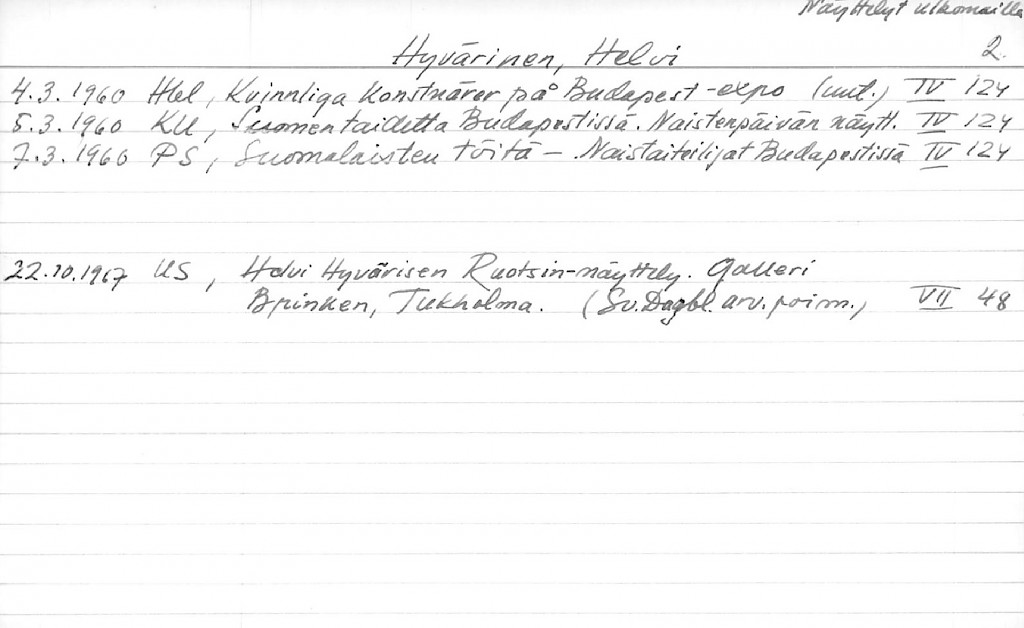 Näyttelyt ulkomailla
Hyvärinen, Helvi 2.
4.3.1960 Hbl, Kvinnliga konstnärer på Budapest-expo (uut.) IV 124
5.3.1960 KU, Suomen taidetta Budapestissä. Naistenpäivän näytt. IV 124
7.3.1960 PS, Suomalaisten töitä - Naistaiteilijat Budapestissä IV 124
22.10.1967 US, Helvi Hyvärisen Ruotsin-näyttely. Galleri
Brinken, Tukholma. (Sv.Dagbl. arv. poim.) VII 48